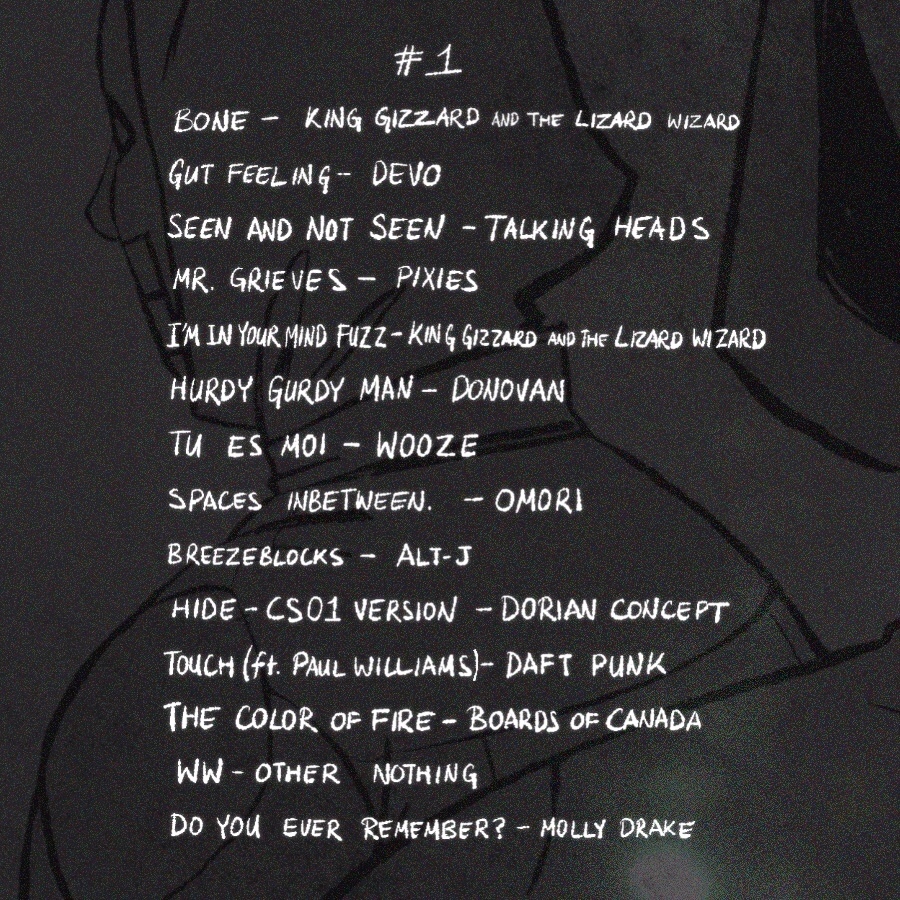 #1
BONE - KING GIZZARD AND THE LIZARD WIZARD
GUT FEELING - DEVO
SEEN AND NOT SEEN - TALKING HEADS
MR. GRIEVES - PIXIES
I'M IN YOUR MIND FUZZ - KING GIZZARD AND THE LIZARD WIZARD
HURDY GURDY MAN - DONOVAN
TU ES MOI - WOOZE
SPACES INBETWEEN. - OMORI
BREEZEBLOCKS - ALT-J
HIDE - CS01 VERSION - DORIAN CONCEPT
TOUCH (ft. PAUL WILLIAMS) - DAFT PUNK
THE COLOR OF FIRE - BOARDS OF CANADA
WW - OTHER NOTHING
DO YOU EVER REMEMBER? - MOLLY DRAKE